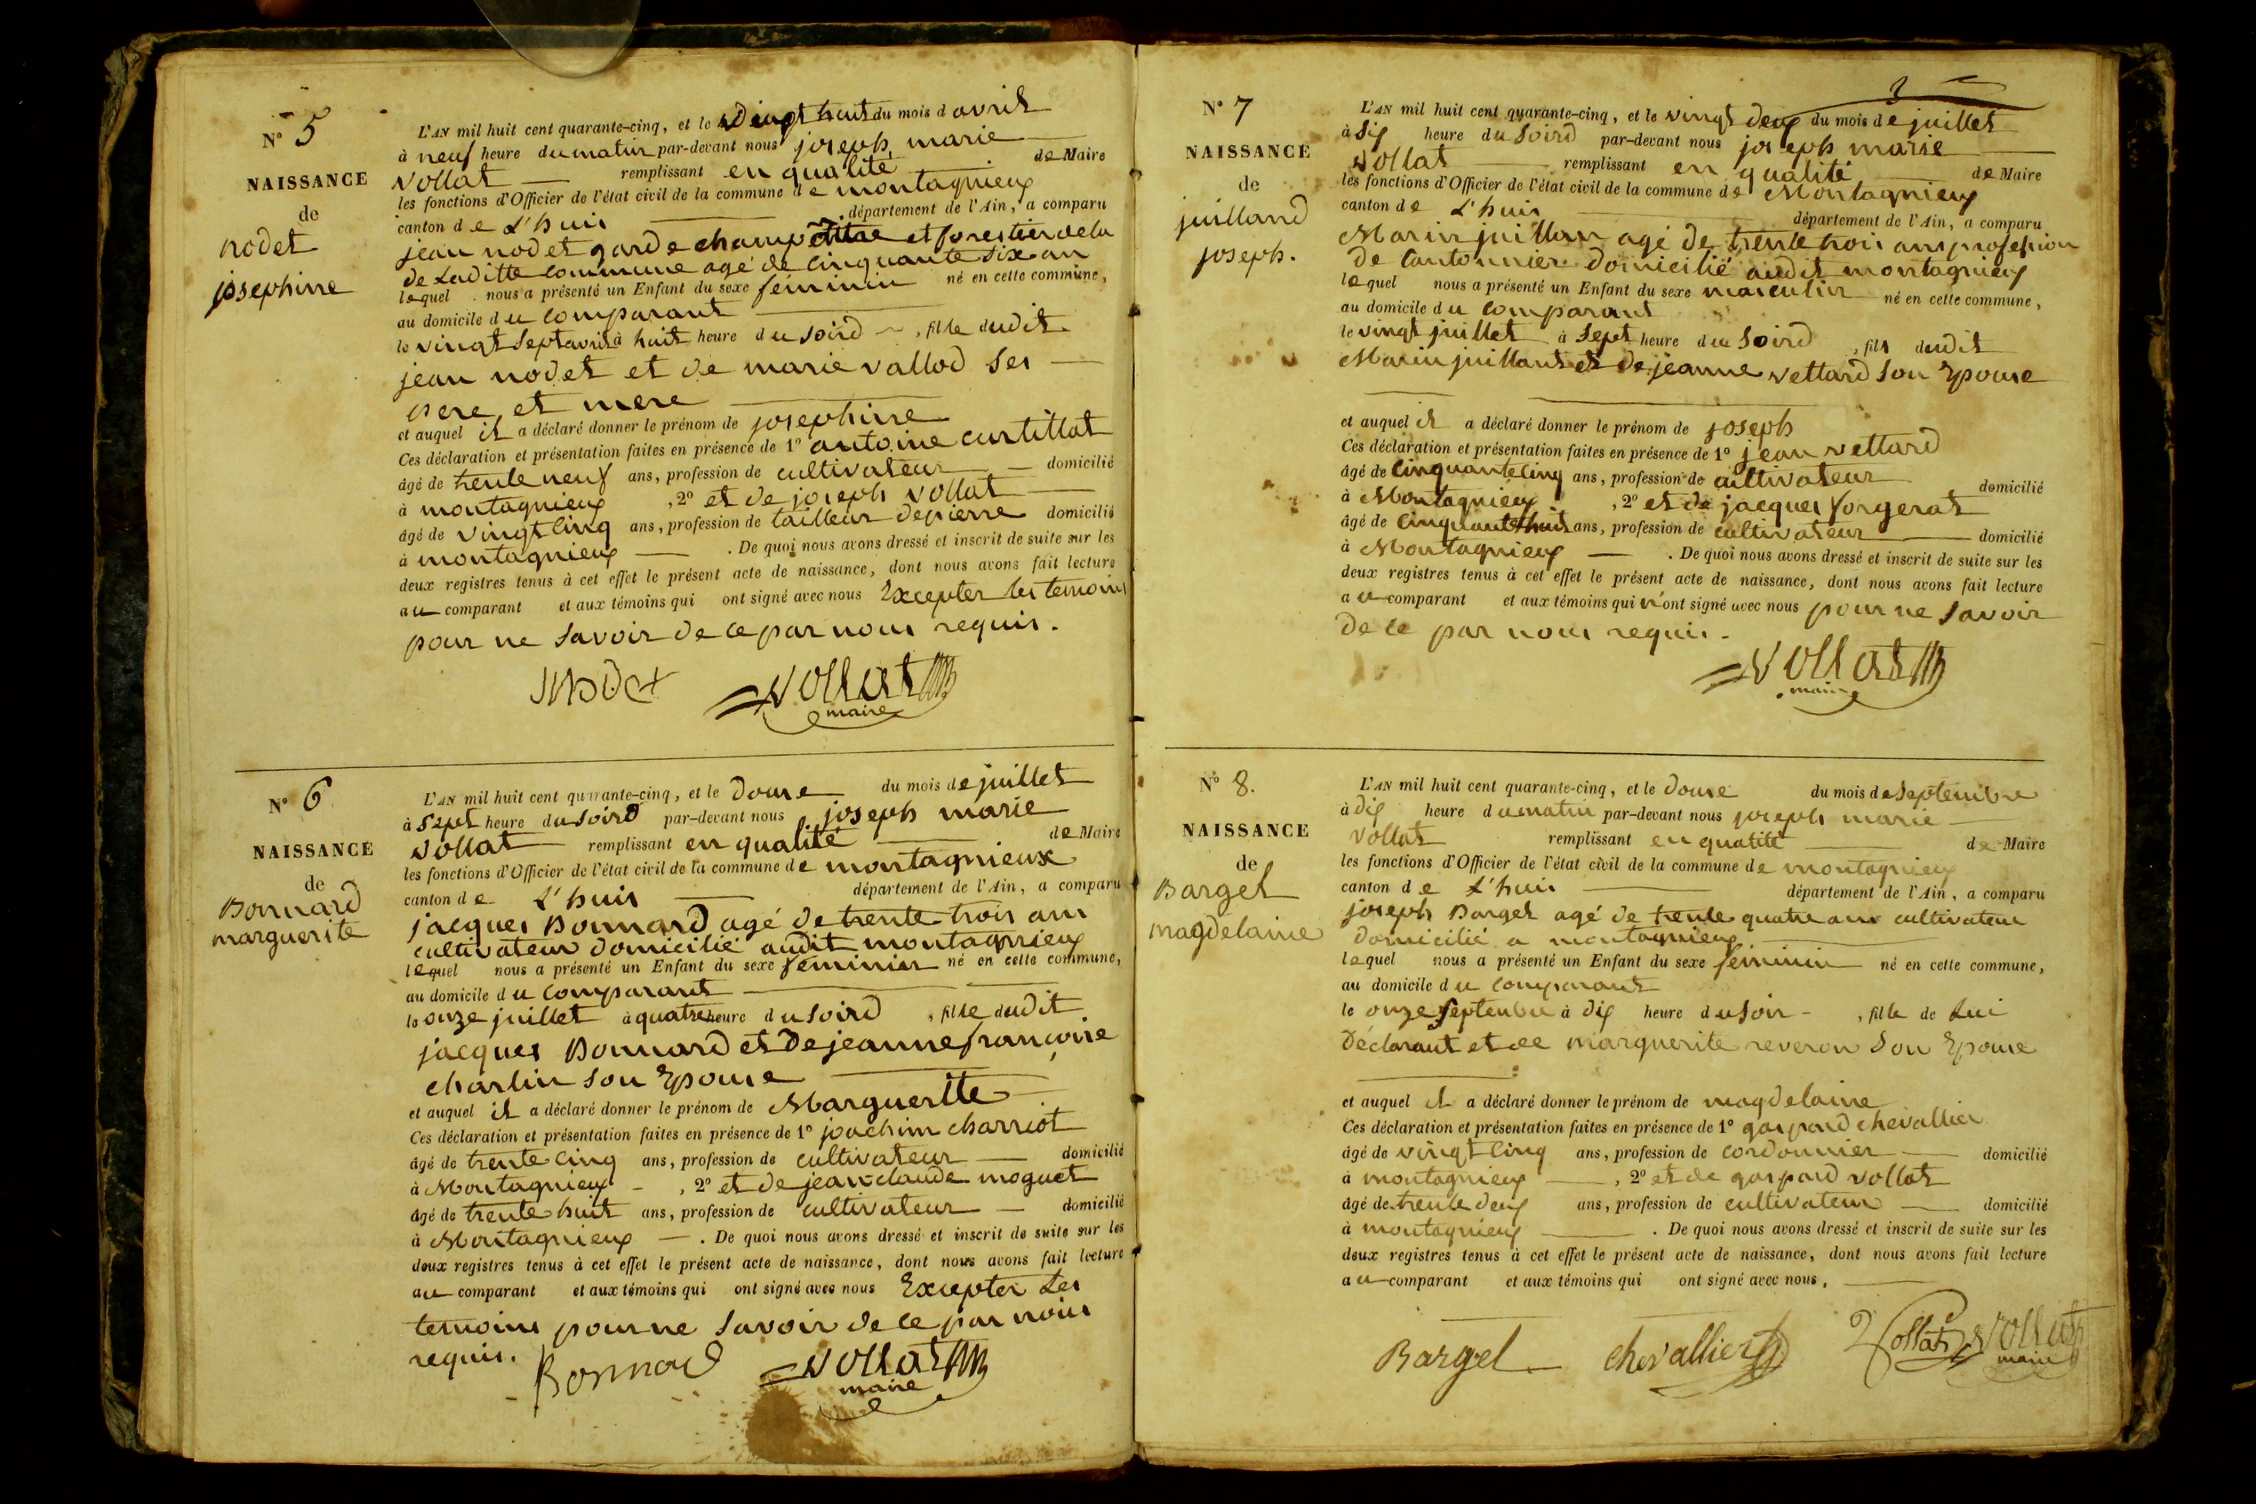 N° 5
NAISSANCE
de
nodet
josephine
L'AN mil huit cent quarante-cinq, et le vingt huit du mois d avril
à neuf heure du matin par-devant nous joseph marie
vollat remplissant en qualité de Maire
les fonctions d'Officier de l'état civil de la commune de montagnieux
canton de L'huis département de l'Ain, a comparu
jean nodet garde champêtre et forestier de la
de Laditte commune agé de cinquante six an
lequel nous a présenté un Enfant du sexe feminin né en cette commune,
au domicile du comparant
le vingt sept avril à huit heure du soird, fille dudit
jean nodet et de marie vallod ses
pere et mere
et auquel il a déclaré donner le prénom de josephine
Ces déclaration et présentation faites en présence de 1° antoine curtillat
âgé de trente neuf ans, profession de cultivateur domicilié
à montagnieux, 2° et de joseph vollat
âgé de vingt cinq ans, profession de tailleur depierre domicilié
à montagnieux. De quoi nous avons dressé et inscrit de suite sur les
deux registres tenus à cet effet le présent acte de naissance, dont nous avons fait lecture
au comparant et aux témoins qui ont signé avec nous Excepter les temoins
pour ne savoir de ce par nous requis.
Nodet vollat
maire
N° 6
NAISSANCE
de
Bonnard
marguerite
L'AN mil huit cent quarante-cinq, et le douse du mois de juillet
à sept heure du soird par-devant nous joseph marie
vollat remplissant en qualité de Maire
les fonctions d'Officier de l'état civil de la commune de montagnieux
canton de L'huis département de l'Ain, a comparu
jacques Bonnard agé de trente trois ans
cultivateur domicilié audit montagnieux
lequel nous a présenté un Enfant du sexe feminin né en cette commune,
au domicile du comparant
le onze juillet à quatre heure du soird, fille dudit
jacques Bonnard et de jeanne françoise
charlin son Epouse
et auquel il a déclaré donner le prénom de Marguerite
Ces déclaration et présentation faites en présence de 1° joachim charriot
âgé de trente cinq ans, profession de cultivateur domicilié
à Montagnieux, 2° et de jean claude moguet
âgé de trente huit ans, profession de cultivateur domicilié
à Montagnieux. De quoi nous avons dressé et inscrit de suite sur les
deux registres tenus à cet effet le présent acte de naissance, dont nous avons fait lecture
au comparant et aux témoins qui ont signé avec nous Excepter Les
temoins pour ne savoir de ce par nous
requis. Bonnard vollat
maire
N° 7
NAISSANCE
de
juilland
joseph.
3
L'AN mil huit cent quarante-cinq, et le vingt deux du mois de juillet
à six heure du soird par-devant nous joseph marie
vollat remplissant en qualité de Maire
les fonctions d'Officier de l'état civil de la commune de Montagnieux
canton de L'huis département de l'Ain, a comparu
Marin juillan agé de trente trois ans profession
de Cantonnier domicilié audit montagnieux
lequel nous a présenté un Enfant du sexe masculin né en cette commune,
au domicile du comparant
le vingt juillet à sept heure du soird, fils dudit
Marin juillant et de jeanne vettard son Epouse
et auquel il a déclaré donner le prénom de joseph
Ces déclaration et présentation faites en présence de 1° jean vettard
âgé de cinquante cinq ans, profession de cultivateur domicilié
à Montagnieux, 2° et de jacques forgerat
âgé de cinquante huit ans, profession de cultivateur domicilié
à Montagnieux. De quoi nous avons dressé et inscrit de suite sur les
deux registres tenus à cet effet le présent acte de naissance, dont nous avons fait lecture
au comparant et aux témoins qui n'ont signé avec nous pour ne savoir
de ce par nous requis.
vollat
maire
N° 8.
NAISSANCE
de
Bargel
magdelaine
L'AN mil huit cent quarante-cinq, et le douse du mois de septembre
à dix heure du matin par-devant nous joseph marie
vollat remplissant en qualité de Maire
les fonctions d'Officier de l'état civil de la commune de montagnieux
canton de L'huis département de l'Ain, a comparu
joseph Bargel agé de trente quatre ans cultivateur
domicilié a montagnieux
lequel nous a présenté un Enfant du sexe feminin né en cette commune,
au domicile du comparant
le onze septembre à dix heure du soir, fille de Lui
Déclarant et de marguerite reveron son Epouse
et auquel il a déclaré donner le prénom de magdelaine
Ces déclaration et présentation faites en présence de 1° gaspard chevallier
âgé de vingt cinq ans, profession de cordonnier domicilié
à montagnieux, 2° et de gaspard vollat
âgé de trente deux ans, profession de cultivateur domicilié
à montagnieux. De quoi nous avons dressé et inscrit de suite sur les
deux registres tenus à cet effet le présent acte de naissance, dont nous avons fait lecture
au comparant et aux témoins qui ont signé avec nous.
Bargel chevallier Vollat vollat
maire